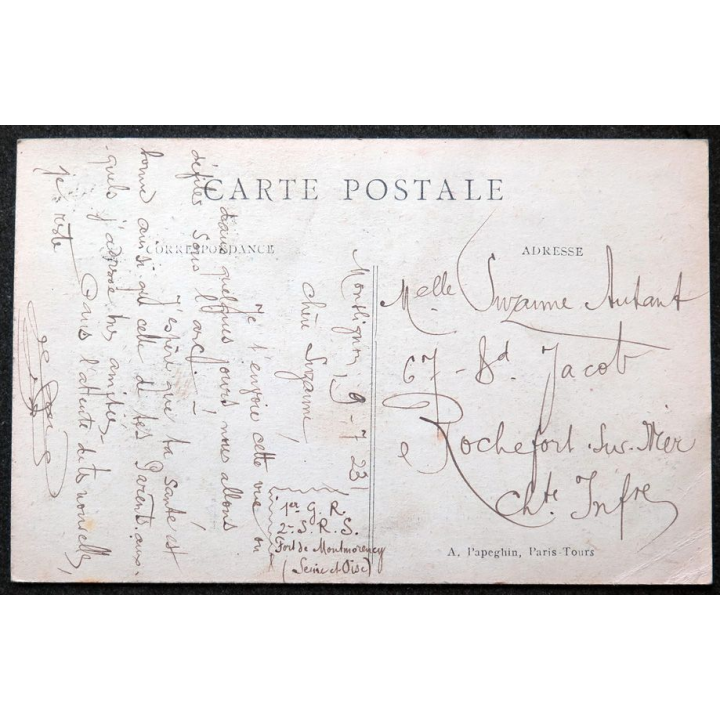 CARTE POSTALE
CORRESPONDANCE
ADRESSE
Montlignon, 9-7-23
Chère Suzanne,
Je t'envoie cette vue où
dans quelques jours nous allons
défiler sous l'arc!
J'espère que ta santé est
bonne ainsi que celle de tes Parents aux-
quels j'adresse mes amitiés-
Dans l'attente de tes nouvelles,
je reste
1er G. R.
2e S. R. S.
Fort de Montmorency
(Seine et Oise)
Melle Suzanne Autant
67 - Bd. Jacob
Rochefort-sur-Mer
Chte Infre
A. Papeghin, Paris-Tours